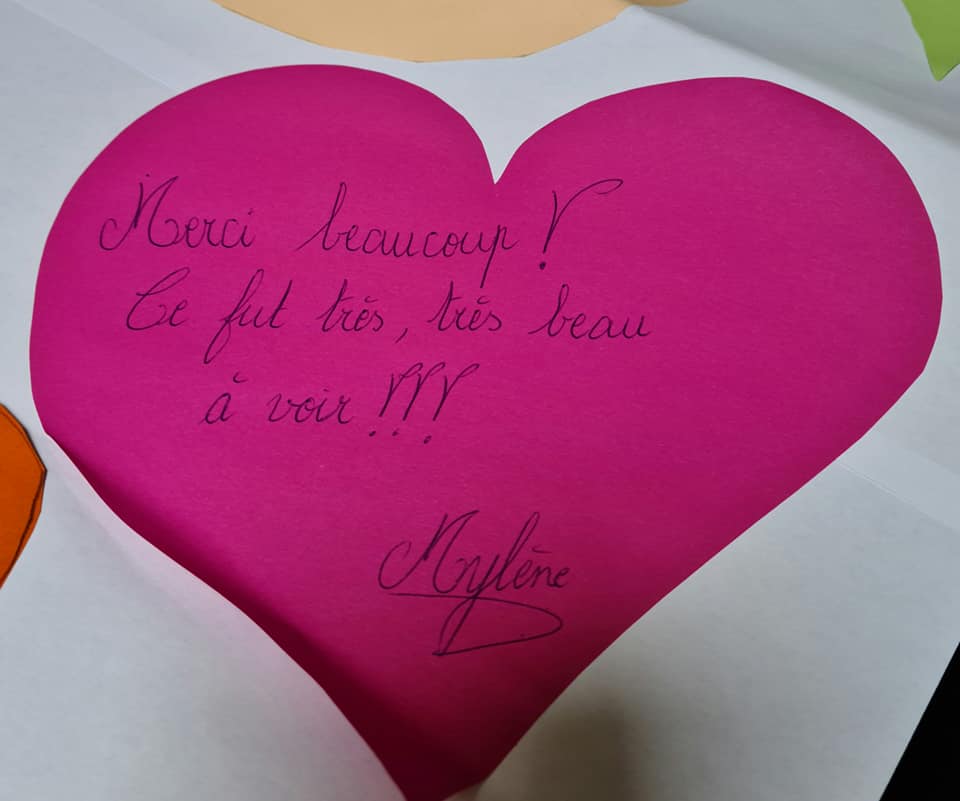 Merci beaucoup !
Ce fut très, très beau
à voir !!!
Mylène